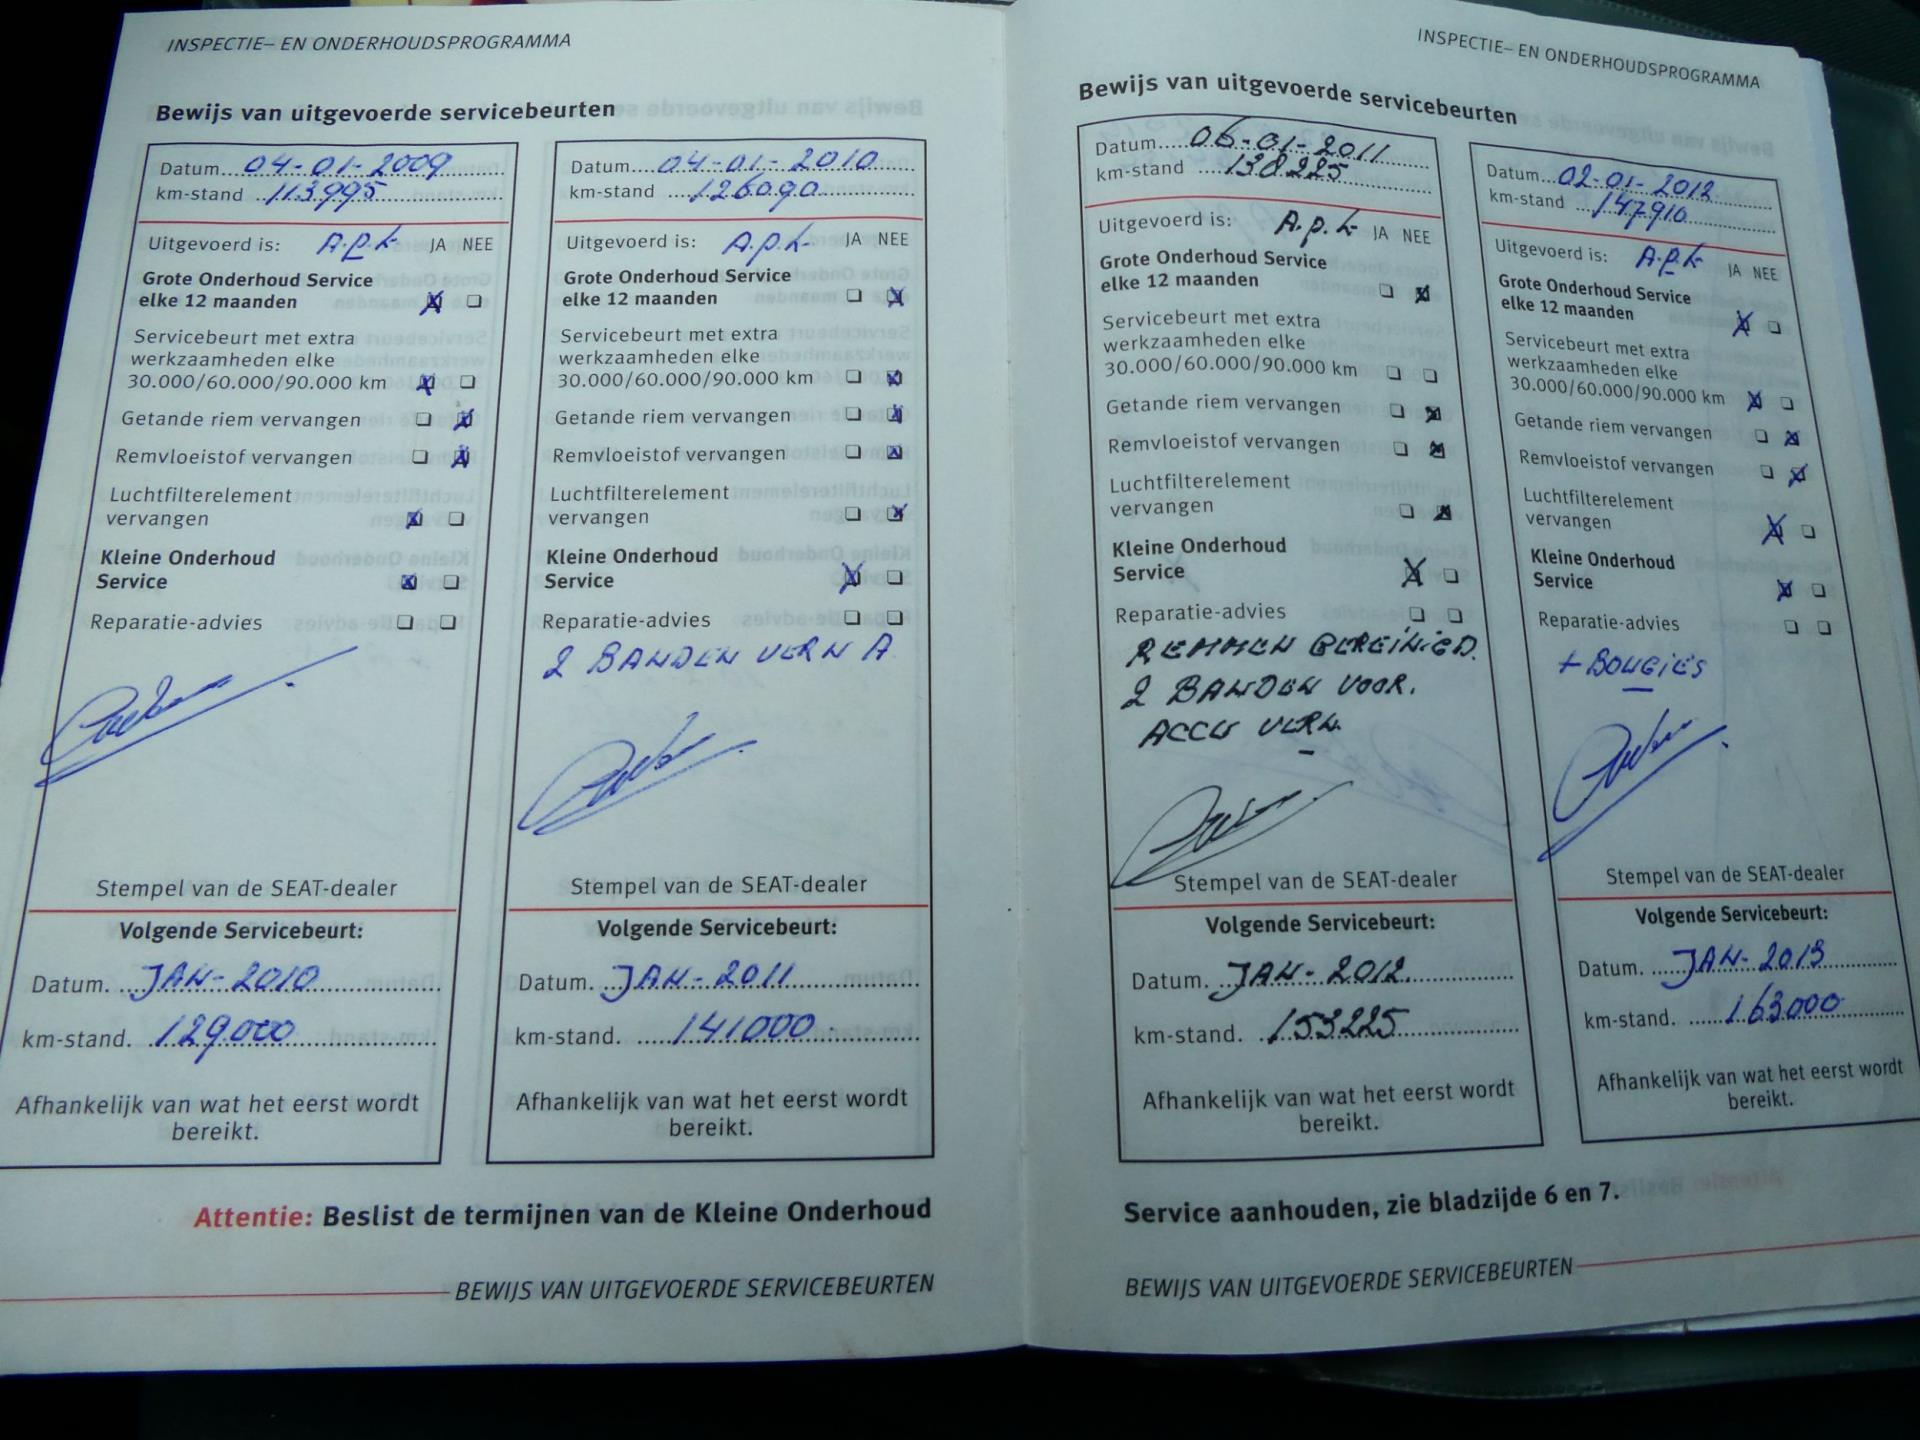 INSPECTIE– EN ONDERHOUDSPROGRAMMA
Bewijs van uitgevoerde servicebeurten
Datum....04-01-2009
km-stand ..113995
Uitgevoerd is: A.P.K JA NEE
Grote Onderhoud Service
elke 12 maanden
Servicebeurt met extra
werkzaamheden elke
30.000/60.000/90.000 km
Getande riem vervangen
Remvloeistof vervangen
Luchtfilterelement
vervangen
Kleine Onderhoud
Service
Reparatie-advies
Stempel van de SEAT-dealer
Volgende Servicebeurt:
Datum. ..JAN-2010
km-stand. .129.000
Afhankelijk van wat het eerst wordt
bereikt.
Datum....04-01-2010
km-stand ....126090
Uitgevoerd is: A.P.K JA NEE
Grote Onderhoud Service
elke 12 maanden
Servicebeurt met extra
werkzaamheden elke
30.000/60.000/90.000 km
Getande riem vervangen
Remvloeistof vervangen
Luchtfilterelement
vervangen
Kleine Onderhoud
Service
Reparatie-advies
2 BANDEN VERN A
Stempel van de SEAT-dealer
Volgende Servicebeurt:
Datum. ..JAN-2011
km-stand. .....141000.
Afhankelijk van wat het eerst wordt
bereikt.
Attentie: Beslist de termijnen van de Kleine Onderhoud
BEWIJS VAN UITGEVOERDE SERVICEBEURTEN
INSPECTIE– EN ONDERHOUDSPROGRAMMA
Bewijs van uitgevoerde servicebeurten
Datum.....06-01-2011
km-stand ....138225
Uitgevoerd is: A.P.K JA NEE
Grote Onderhoud Service
elke 12 maanden
Servicebeurt met extra
werkzaamheden elke
30.000/60.000/90.000 km
Getande riem vervangen
Remvloeistof vervangen
Luchtfilterelement
vervangen
Kleine Onderhoud
Service
Reparatie-advies
REMMEN GEREINIGD.
2 BANDEN VOOR.
ACCU VERN.
Stempel van de SEAT-dealer
Volgende Servicebeurt:
Datum. ..JAN-2012.
km-stand. ..153225
Afhankelijk van wat het eerst wordt
bereikt.
Datum...02-01-2012
km-stand ...147910
Uitgevoerd is: A.P.K JA NEE
Grote Onderhoud Service
elke 12 maanden
Servicebeurt met extra
werkzaamheden elke
30.000/60.000/90.000 km
Getande riem vervangen
Remvloeistof vervangen
Luchtfilterelement
vervangen
Kleine Onderhoud
Service
Reparatie-advies
+ BOUGIES
Stempel van de SEAT-dealer
Volgende Servicebeurt:
Datum. ....JAN-2013
km-stand. ......163000
Afhankelijk van wat het eerst wordt
bereikt.
Service aanhouden, zie bladzijde 6 en 7.
BEWIJS VAN UITGEVOERDE SERVICEBEURTEN